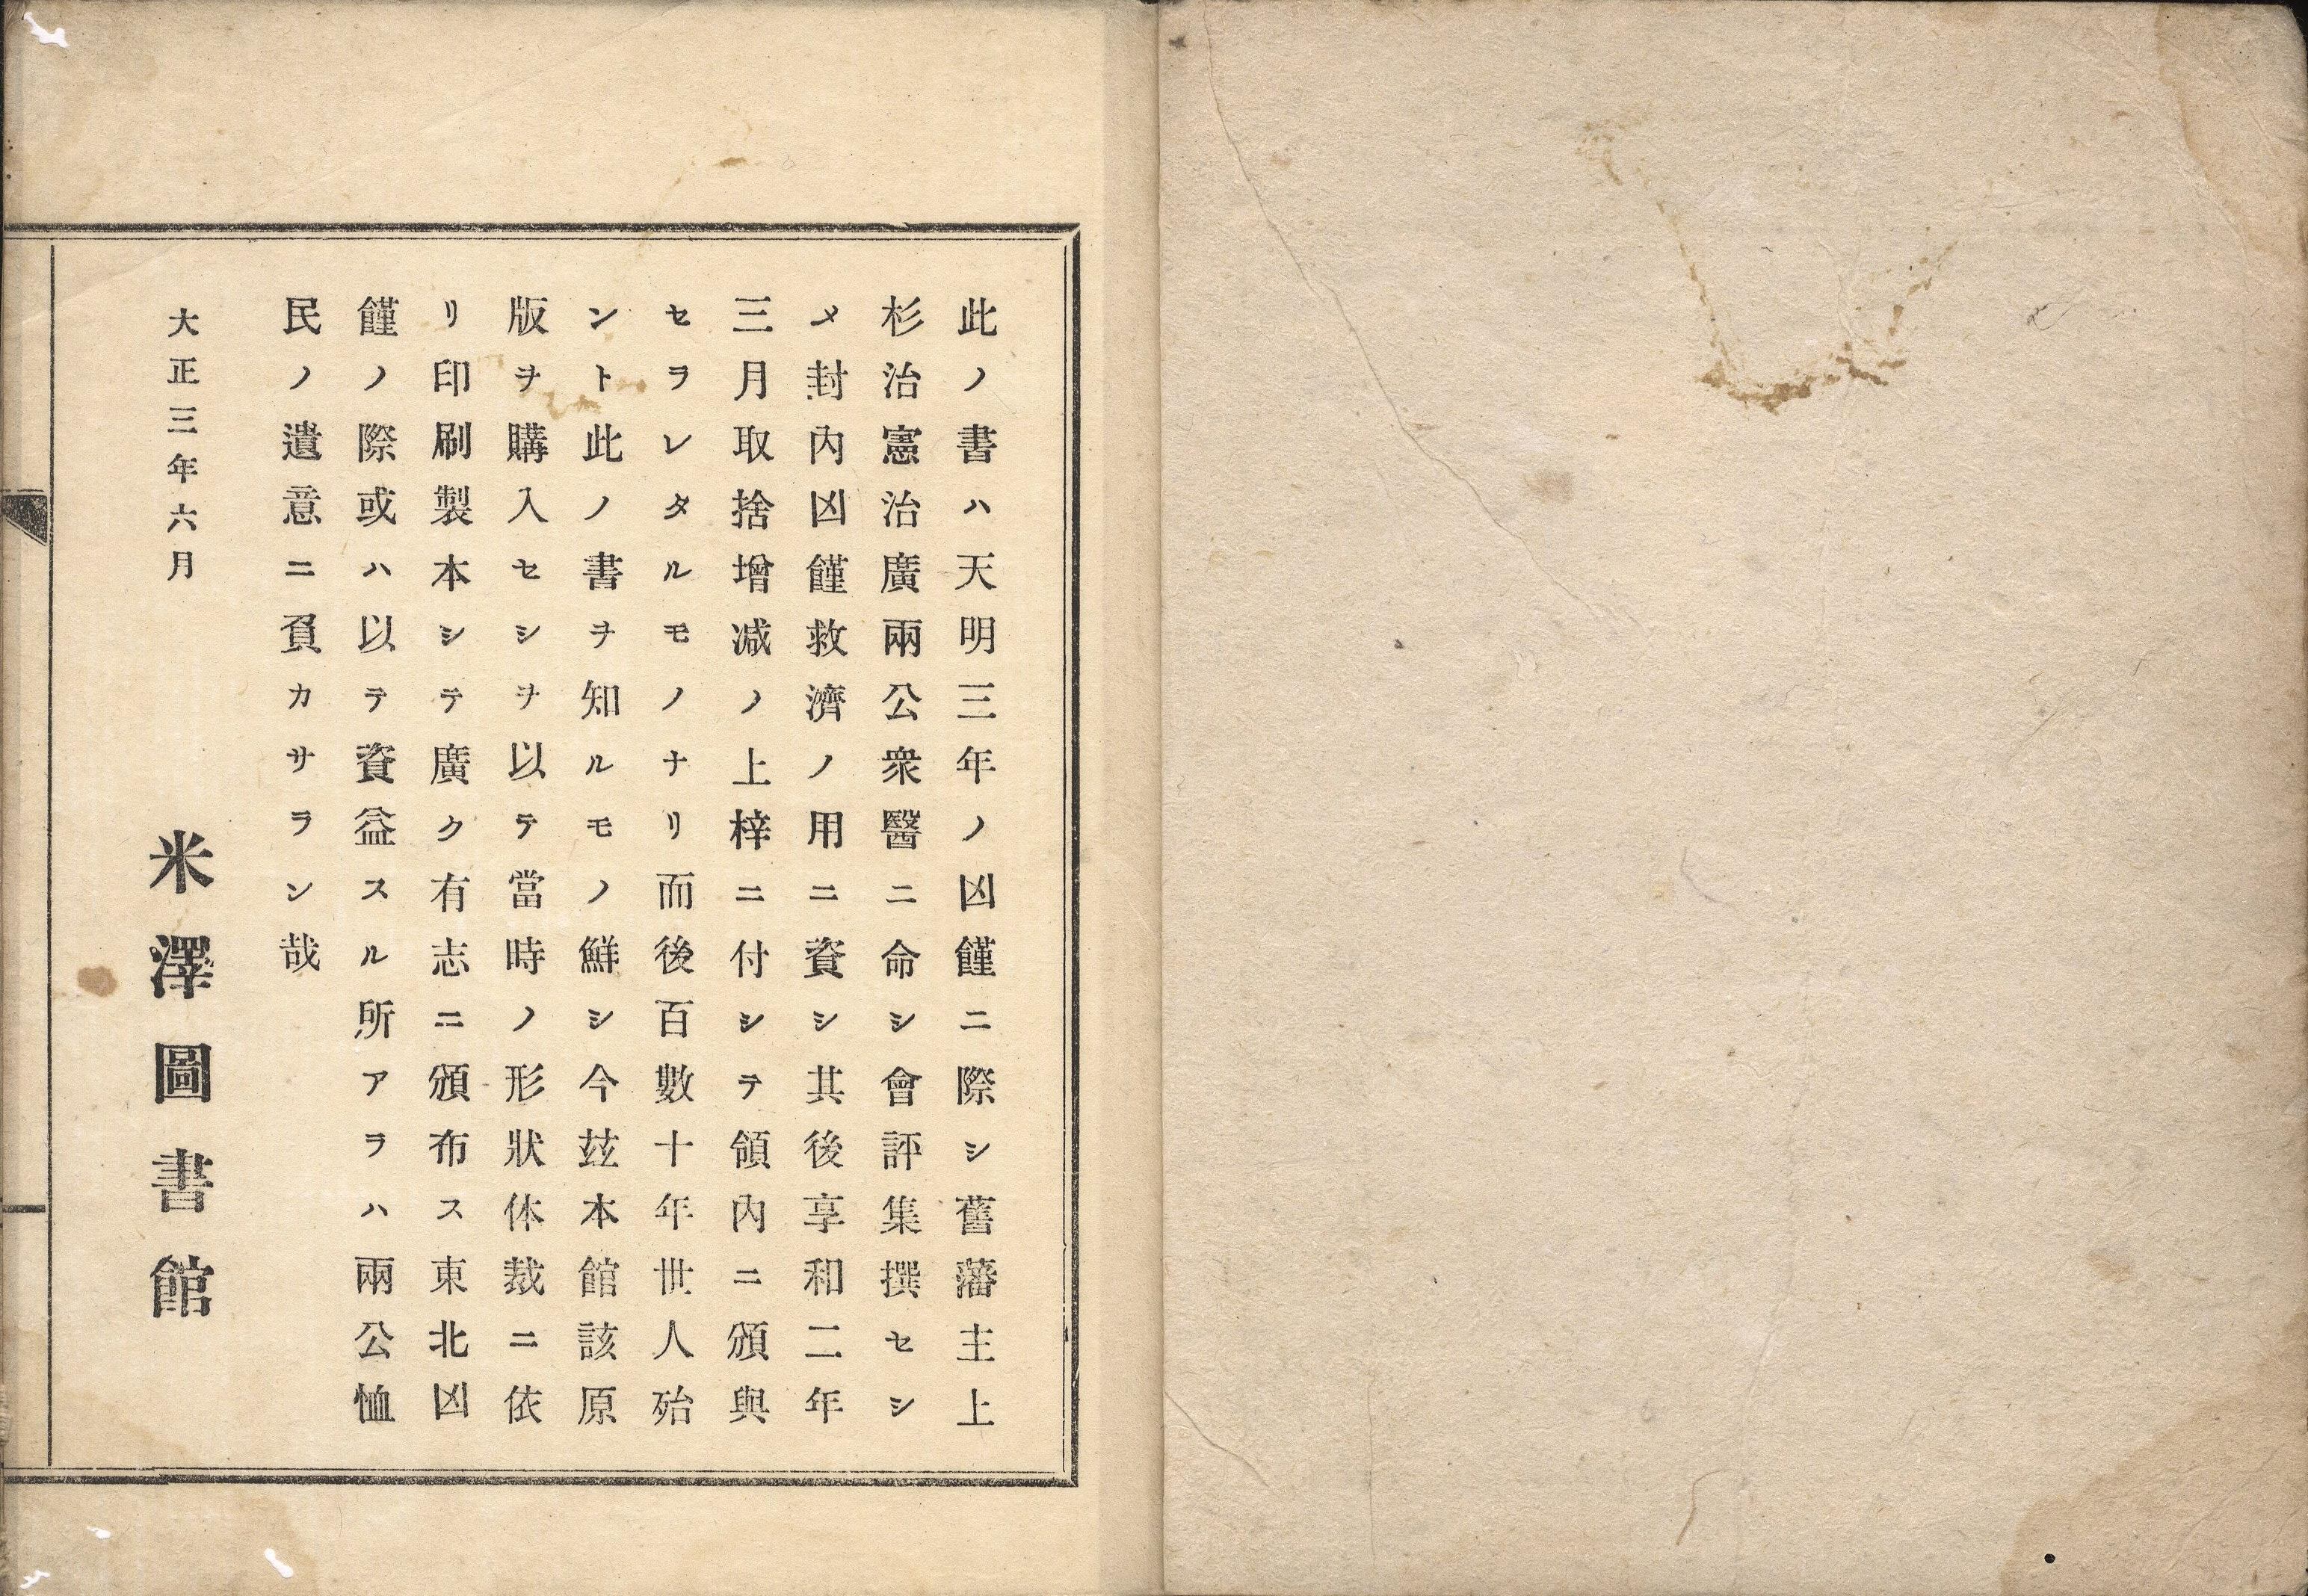 此ノ書ハ天明三年ノ凶饉ニ際シ舊藩主上
杉治憲治廣兩公衆醫ニ命シ會評集撰セシ
メ封內凶饉救濟ノ用ニ資シ其後享和二年
三月取捨增减ノ上梓ニ付シテ領內ニ頒與
セラレタルモノナリ而後百數十年世人殆
ント此ノ書ヲ知ルモノ鮮シ今玆本館該原
版ヲ購入セシヲ以テ當時ノ形狀体裁ニ依
リ印刷製本シテ廣ク有志ニ頒布ス東北凶
饉ノ際或ハ以テ資益スル所アラハ兩公恤
民ノ遺意ニ負カサラン哉
大正三年六月
米澤圖書館